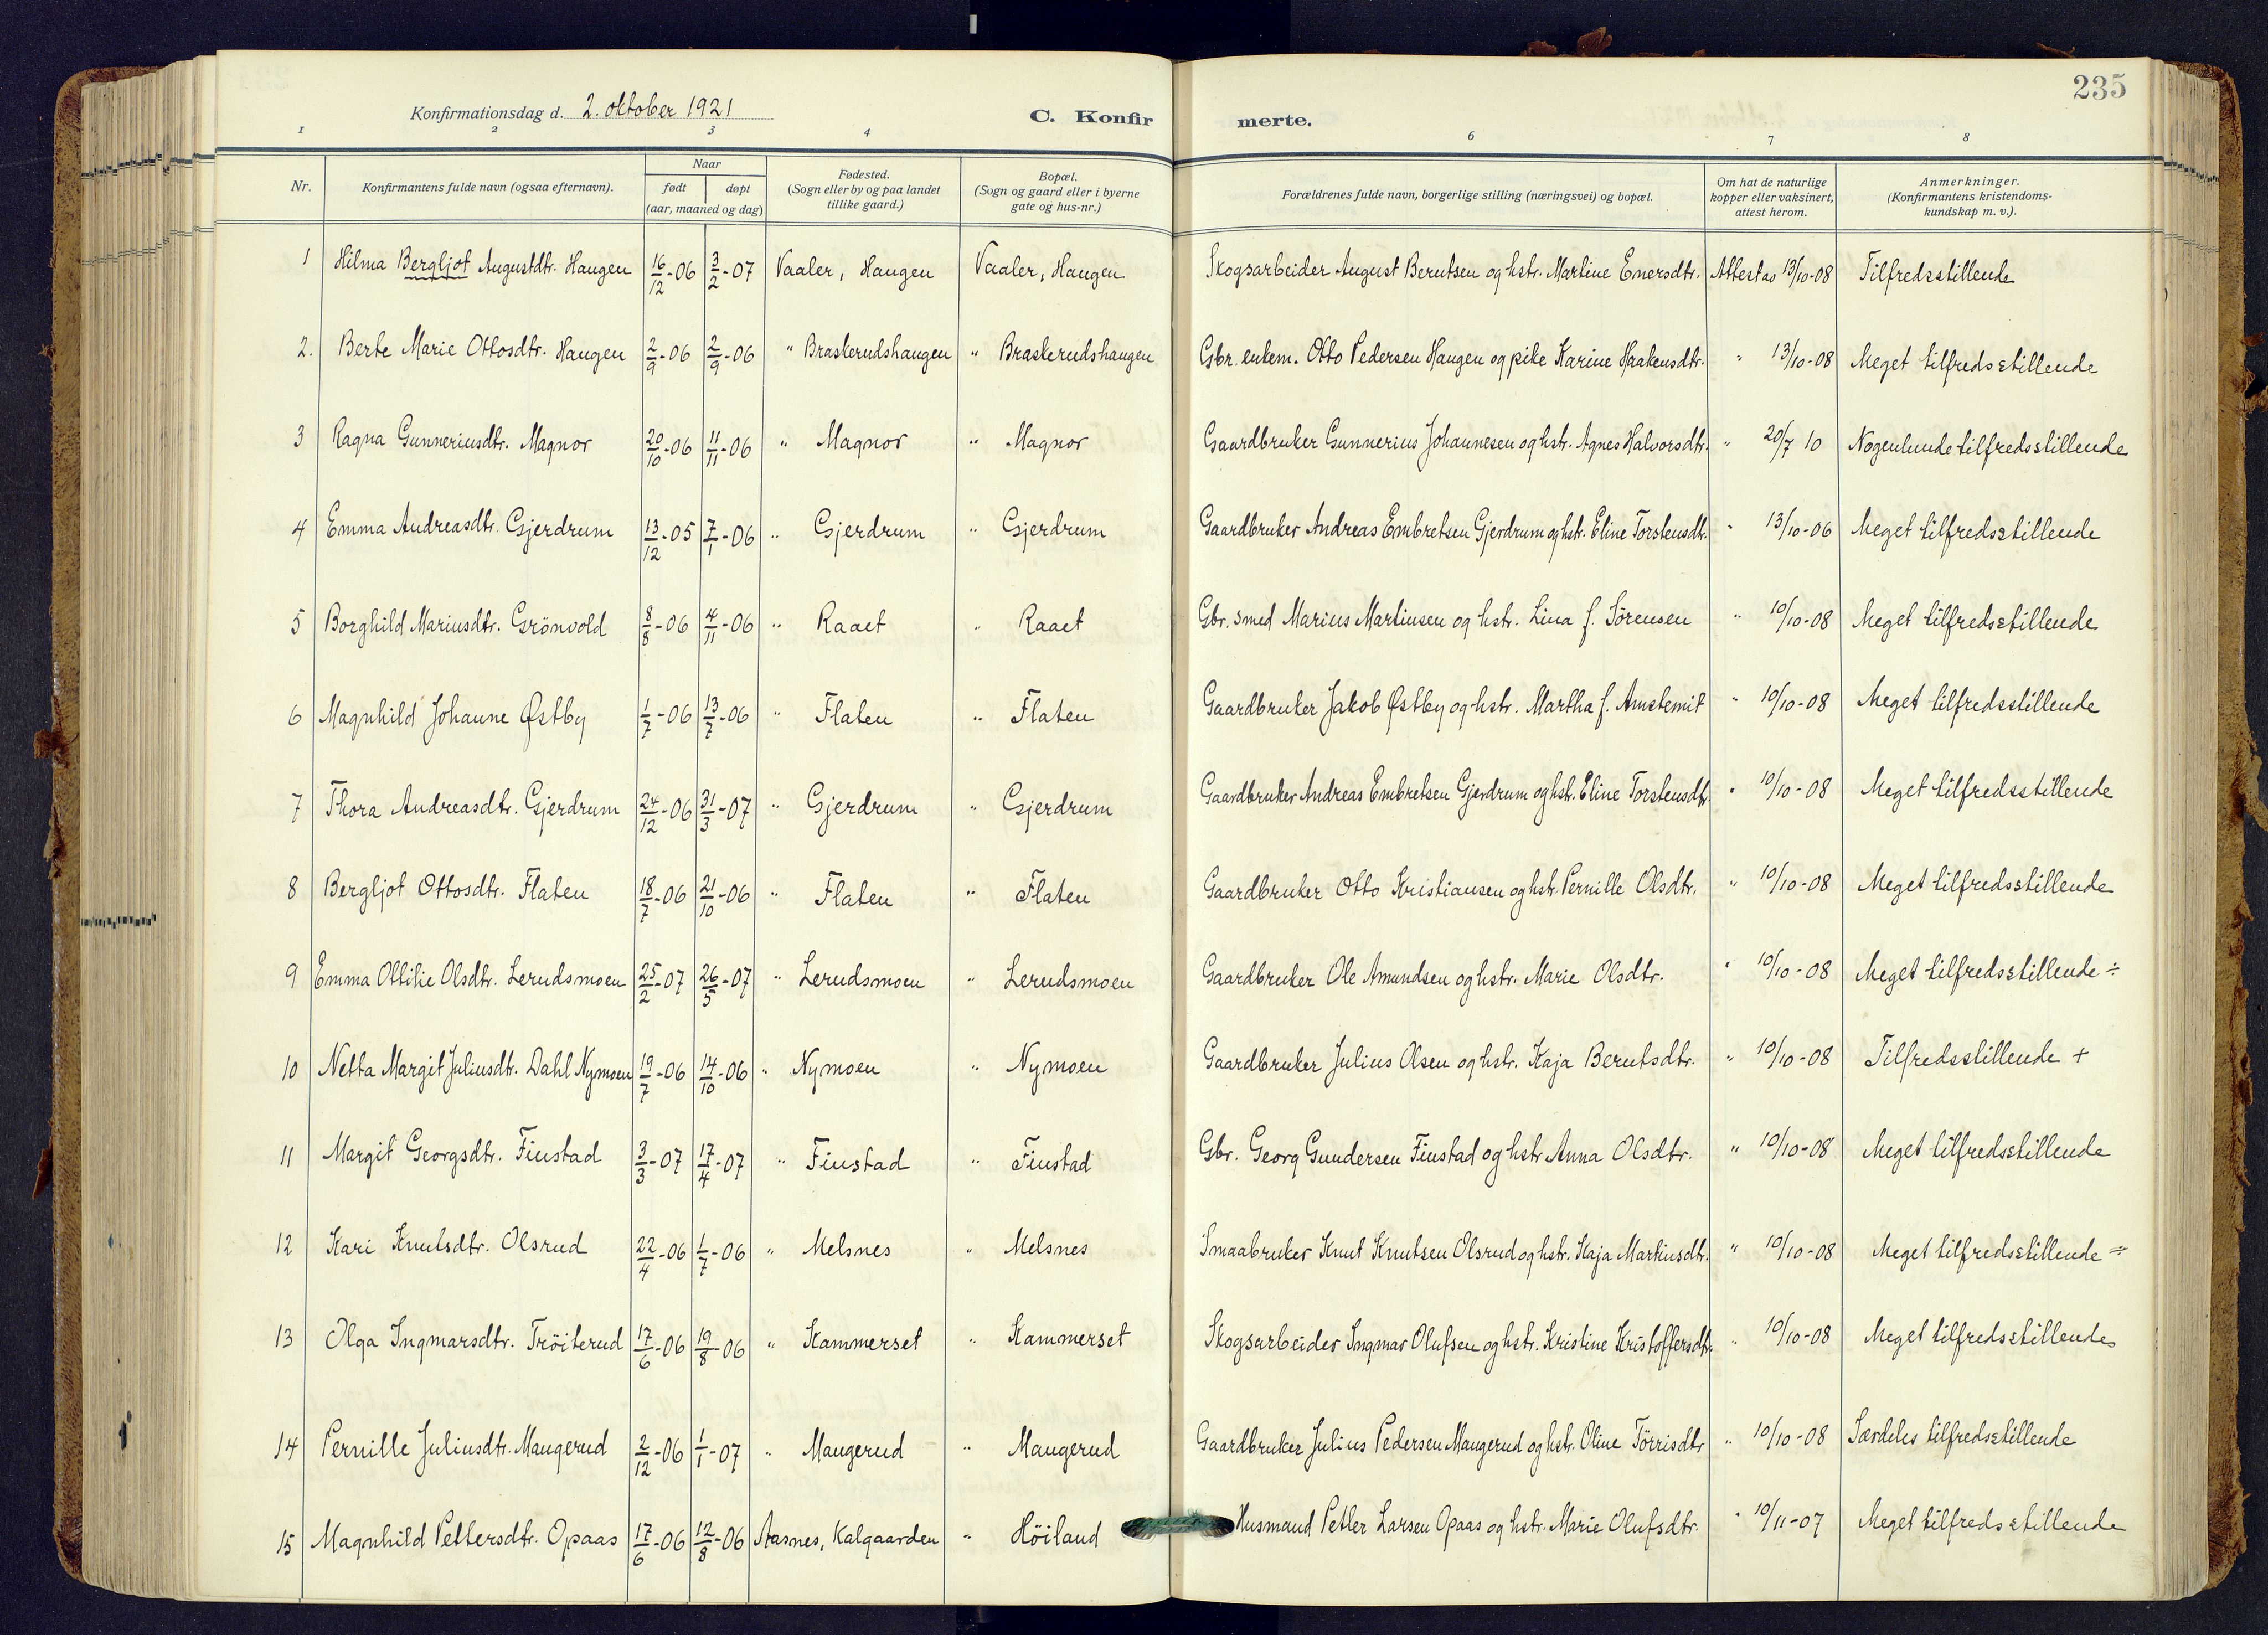 235
Konfirmationsdag d. 2. oktober 1921
C. Konfirmerte.
1 2 3 4 6 7 8
Nr. | Konfirmantens fulde navn (ogsaa efternavn). | Naar født | døpt (aar, maaned og dag) | Fødested. (Sogn eller by og paa landet tillike gaard.) | Bopæl. (Sogn og gaard eller i byerne gate og hus-nr.) | Forældrenes fulde navn, borgerlige stilling (næringsvei) og bopæl. | Om hat de naturlige kopper eller vaksinert, attest herom. | Anmerkninger. (Konfirmantens kristendoms-kundskap m. v.).
1 | Hilma Bergljot Augustdtr. Haugen | 16/12-06 | 3/2-07 | Vaaler, Haugen | Vaaler, Haugen | Skogsarbeider August Berntsen og hstr. Martine Enersdtr. | Attest av 13/10-08 | Tilfredsstillende
2. | Berte Marie Ottosdtr. Haugen | 2/9-06 | 2/9-06 | " Braskerudshaugen | " Braskerudshaugen | Gbr. enkem. Otto Pedersen Haugen og pike Karine Haakensdtr. | " 13/10-08 | Meget tilfredsstillende
3 | Ragna Gunneriusdtr. Magnor | 20/10-06 | 11/11-06 | " Magnor | " Magnor | Gaardbruker Gunnerius Johannesen og hstr. Agnes Halvorsdtr. | " 20/7 10 | Nogenlunde tilfredsstillende
4 | Emma Andreasdtr. Gjerdrum | 13/12-05 | 7/1-06 | " Gjerdrum | " Gjerdrum | Gaardbruker Andreas Embretsen Gjerdrum og hstr. Eline Torstensdtr. | " 13/10-06 | Meget tilfredsstillende
5 | Borghild Mariusdtr. Grönvold | 8/8-06 | 4/11-06 | " Raaet | " Raaet | Gbr. smed Marius Martinsen og hstr. Lina f. Sörensen | " 10/10-08 | Meget tilfredsstillende
6 | Magnhild Johanne Østby | 1/7-06 | 13/7-06 | " Flaten | " Flaten | Gaardbruker Jakob Østby og hstr. Martha f. | " 10/10-08 | Meget tilfredsstillende
7 | Thora Andreasdtr. Gjerdrum | 24/12-06 | 31/3-07 | " Gjerdrum | " Gjerdrum | Gaardbruker Andreas Embretsen Gjerdrum og hstr. Eline Torstensdtr. | " 10/10-08 | Meget tilfredsstillende
8 | Bergljot Ottosdtr. Flaten | 18/7-06 | 21/10-06 | " Flaten | " Flaten | Gaardbruker Otto Kristiansen og hstr. Pernille Olsdtr. | " 10/10-08 | Meget tilfredsstillende
9 | Emma Ottilie Olsdtr. Lerudsmoen | 25/2-07 | 26/5-07 | " Lerudsmoen | " Lerudsmoen | Gaardbruker Ole Amundsen og hstr. Marie Olsdtr. | " 10/10-08 | Meget tilfredsstillende ÷
10 | Netta Margit Juliusdtr. Dahl Nymoen | 19/7-06 | 14/10-06 | " Nymoen | " Nymoen | Gaardbruker Julius Olsen og hstr. Kaja Berntsdtr. | " 10/10-08 | Tilfredsstillende +
11 | Margit Georgsdtr. Finstad | 3/3-07 | 17/4-07 | " Finstad | " Finstad | Gbr. Georg Gundersen Finstad og hstr Anna Olsdtr. | " 10/10-08 | Meget tilfredsstillende
12 | Kari Knutsdtr. Olsrud | 22/4-06 | 1/7-06 | " Melsnes | " Melsnes | Smaabruker Knut Knutsen Olsrud og hstr. Kaja Martinsdtr. | " 10/10-08 | Meget tilfredsstillende ÷
13 | Olga Ingmarsdtr. Tröiterud | 17/6-06 | 19/8-06 | " Kammerset | " Kammerset | Skogsarbeider Ingmar Olufsen og hstr. Kristine Kristoffersdtr. | " 10/10-08 | Meget tilfredsstillende
14 | Pernille Juliusdtr. Maugerud | 2/12-06 | 1/1-07 | " Maugerud | " Maugerud | Gaardbruker Julius Pedersen Maugerud og hstr. Oline Törrisdtr | " 10/10-08 | Særdeles tilfredsstillende
15 | Magnhild Pettersdtr. Opaas | 17/6-06 | 12/8-06 | Aasnes, Kalgaarden | " Höiland | Husmand Petter Larsen Opaas og hstr. Marie Olufsdtr. | " 10/11-07 | Meget tilfredsstillende